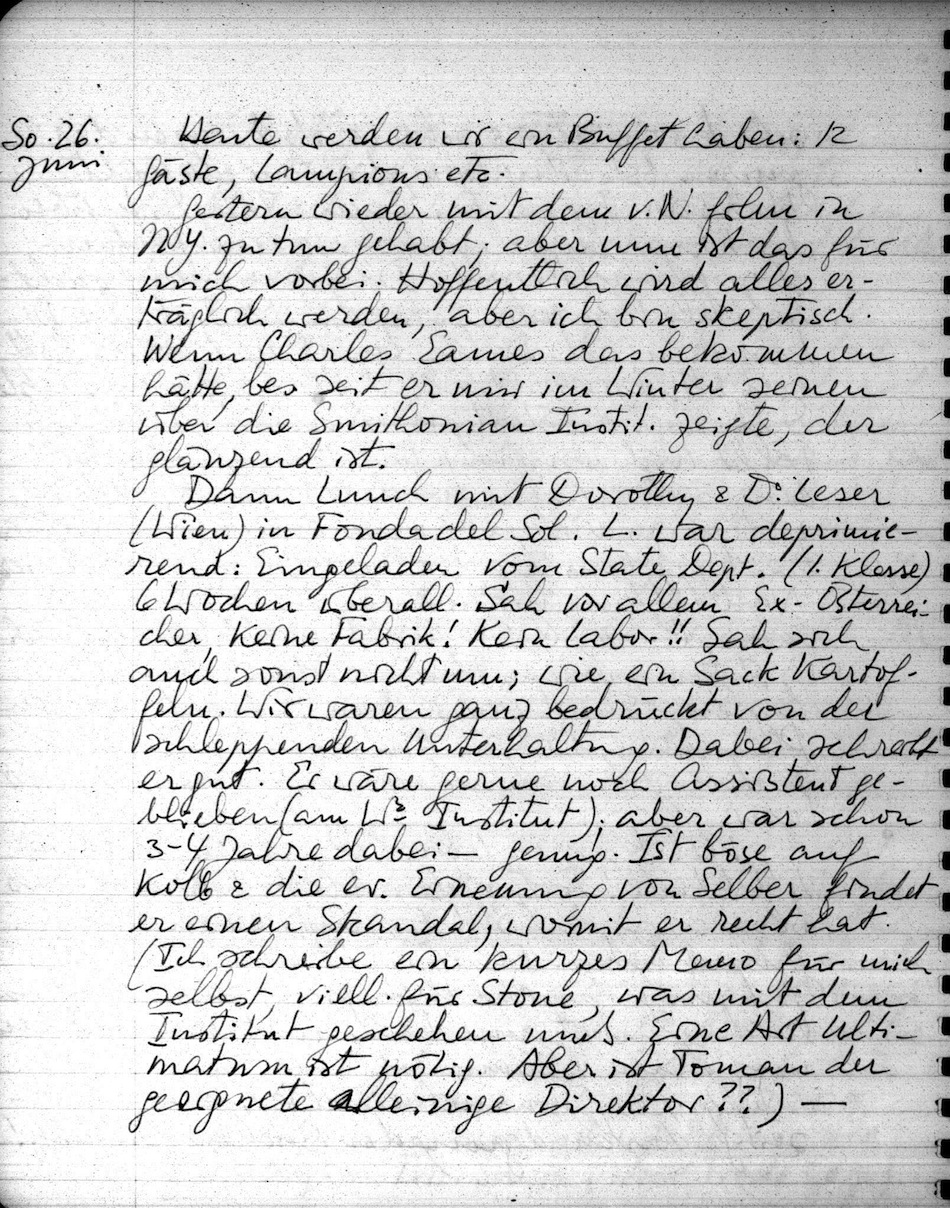 So. 26. Juni
Heute werden wir ein Buffet haben: 12
Gäste, Lampions etc.
Gestern wieder mit dem v. N. film in
NY. zu tun gehabt; aber nun ist das für
mich vorbei. Hoffentlich wird alles er-
träglich werden, aber ich bin skeptisch.
Wenn Charles Eames das bekommen
hätte, bes seit er mir im Winter seinen
über die Smithonian Instit. zeigte, der
glänzend ist.
Dann Lunch mit Dorothy & Dr. Leser
(Wien) in Fonda del Sol. L. war deprimie-
rend: Eingeladen vom State Dept. (1. Klasse)
6 Wochen überall. Sah vor allem Ex-Österrei-
cher, keine Fabrik! Kein Labor!! Sah sich
auch sonst nicht um; wie ein Sack Kartof-
feln. Wir waren ganz bedrückt von der
schleppenden Unterhaltung. Dabei schreibt
er gut. Er wäre gerne noch Assistent ge-
blieben (am Wr. Institut); aber war schon
3-4 Jahre dabei — genug. Ist böse auf
Kolb & die ev. Ernennung von Selber findet
er einen Skandal, womit er recht hat.
(Ich schreibe ein kurzes Memo für mich
selbst, viell. für Stone, was mit dem
Institut geschehen muß. Eine Art Ulti-
matum ist nötig. Aber ist Toman der
geeignete alleinige Direktor??) —